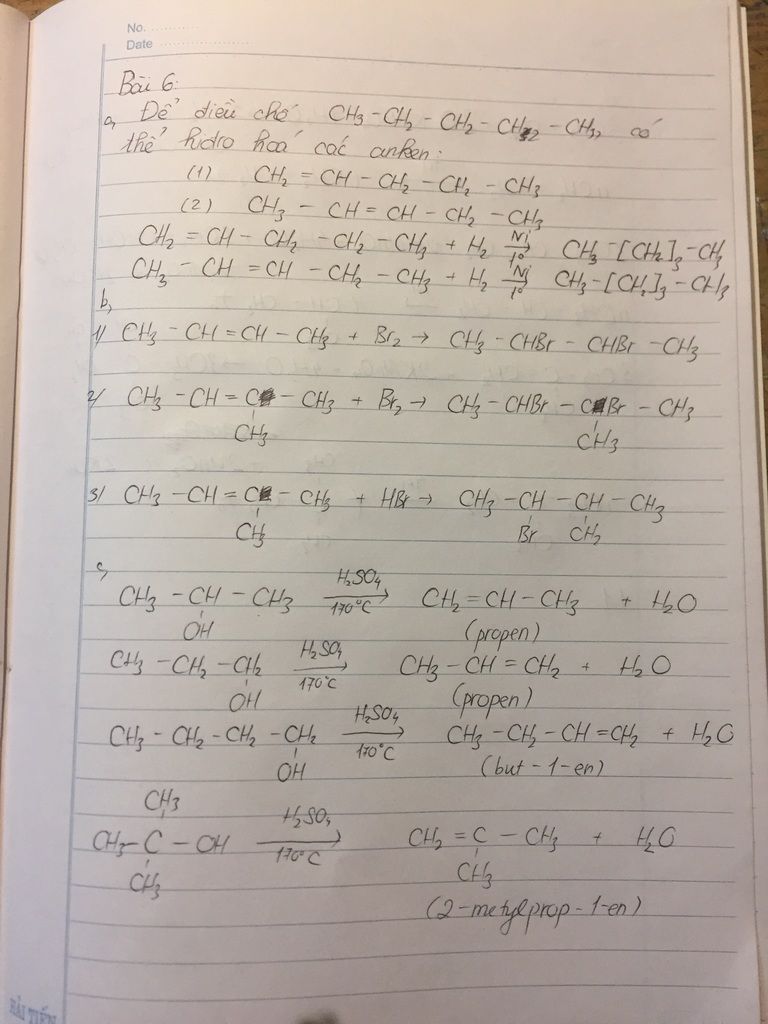 No. ............
Date ......................
Bài 6:
a, Để điều chế CH₃ - CH₂ - CH₂ - CH₂ - CH₃, có
thể hidro hoá các anken:
(1) CH₂ = CH - CH₂ - CH₂ - CH₃
(2) CH₃ - CH = CH - CH₂ - CH₃
CH₂ = CH - CH₂ - CH₂ - CH₃ + H₂ →(Ni, t°) CH₃ - [CH₂]₃ - CH₃
CH₃ - CH = CH - CH₂ - CH₃ + H₂ →(Ni, t°) CH₃ - [CH₂]₃ - CH₃
b,
1/ CH₃ - CH = CH - CH₃ + Br₂ → CH₃ - CHBr - CHBr - CH₃
2/ CH₃ - CH = C - CH₃ + Br₂ → CH₃ - CHBr - CBr - CH₃
CH₃ CH₃
3/ CH₃ - CH = C - CH₃ + HBr → CH₃ - CH - CH - CH₃
CH₃ Br CH₂
c,
CH₃ - CH - CH₃ →(H₂SO₄, 170°C) CH₂ = CH - CH₃ + H₂O
OH (propen)
CH₃ - CH₂ - CH₂ →(H₂SO₄, 170°C) CH₃ - CH = CH₂ + H₂O
OH (propen)
CH₃ - CH₂ - CH₂ - CH₂ →(H₂SO₄, 170°C) CH₃ - CH₂ - CH = CH₂ + H₂O
OH (but - 1 - en)
CH₃
CH₃ - C - OH →(H₂SO₄, 170°C) CH₂ = C - CH₃ + H₂O
CH₃ CH₃
(2 - metylprop - 1 - en)
HẢI TIẾN